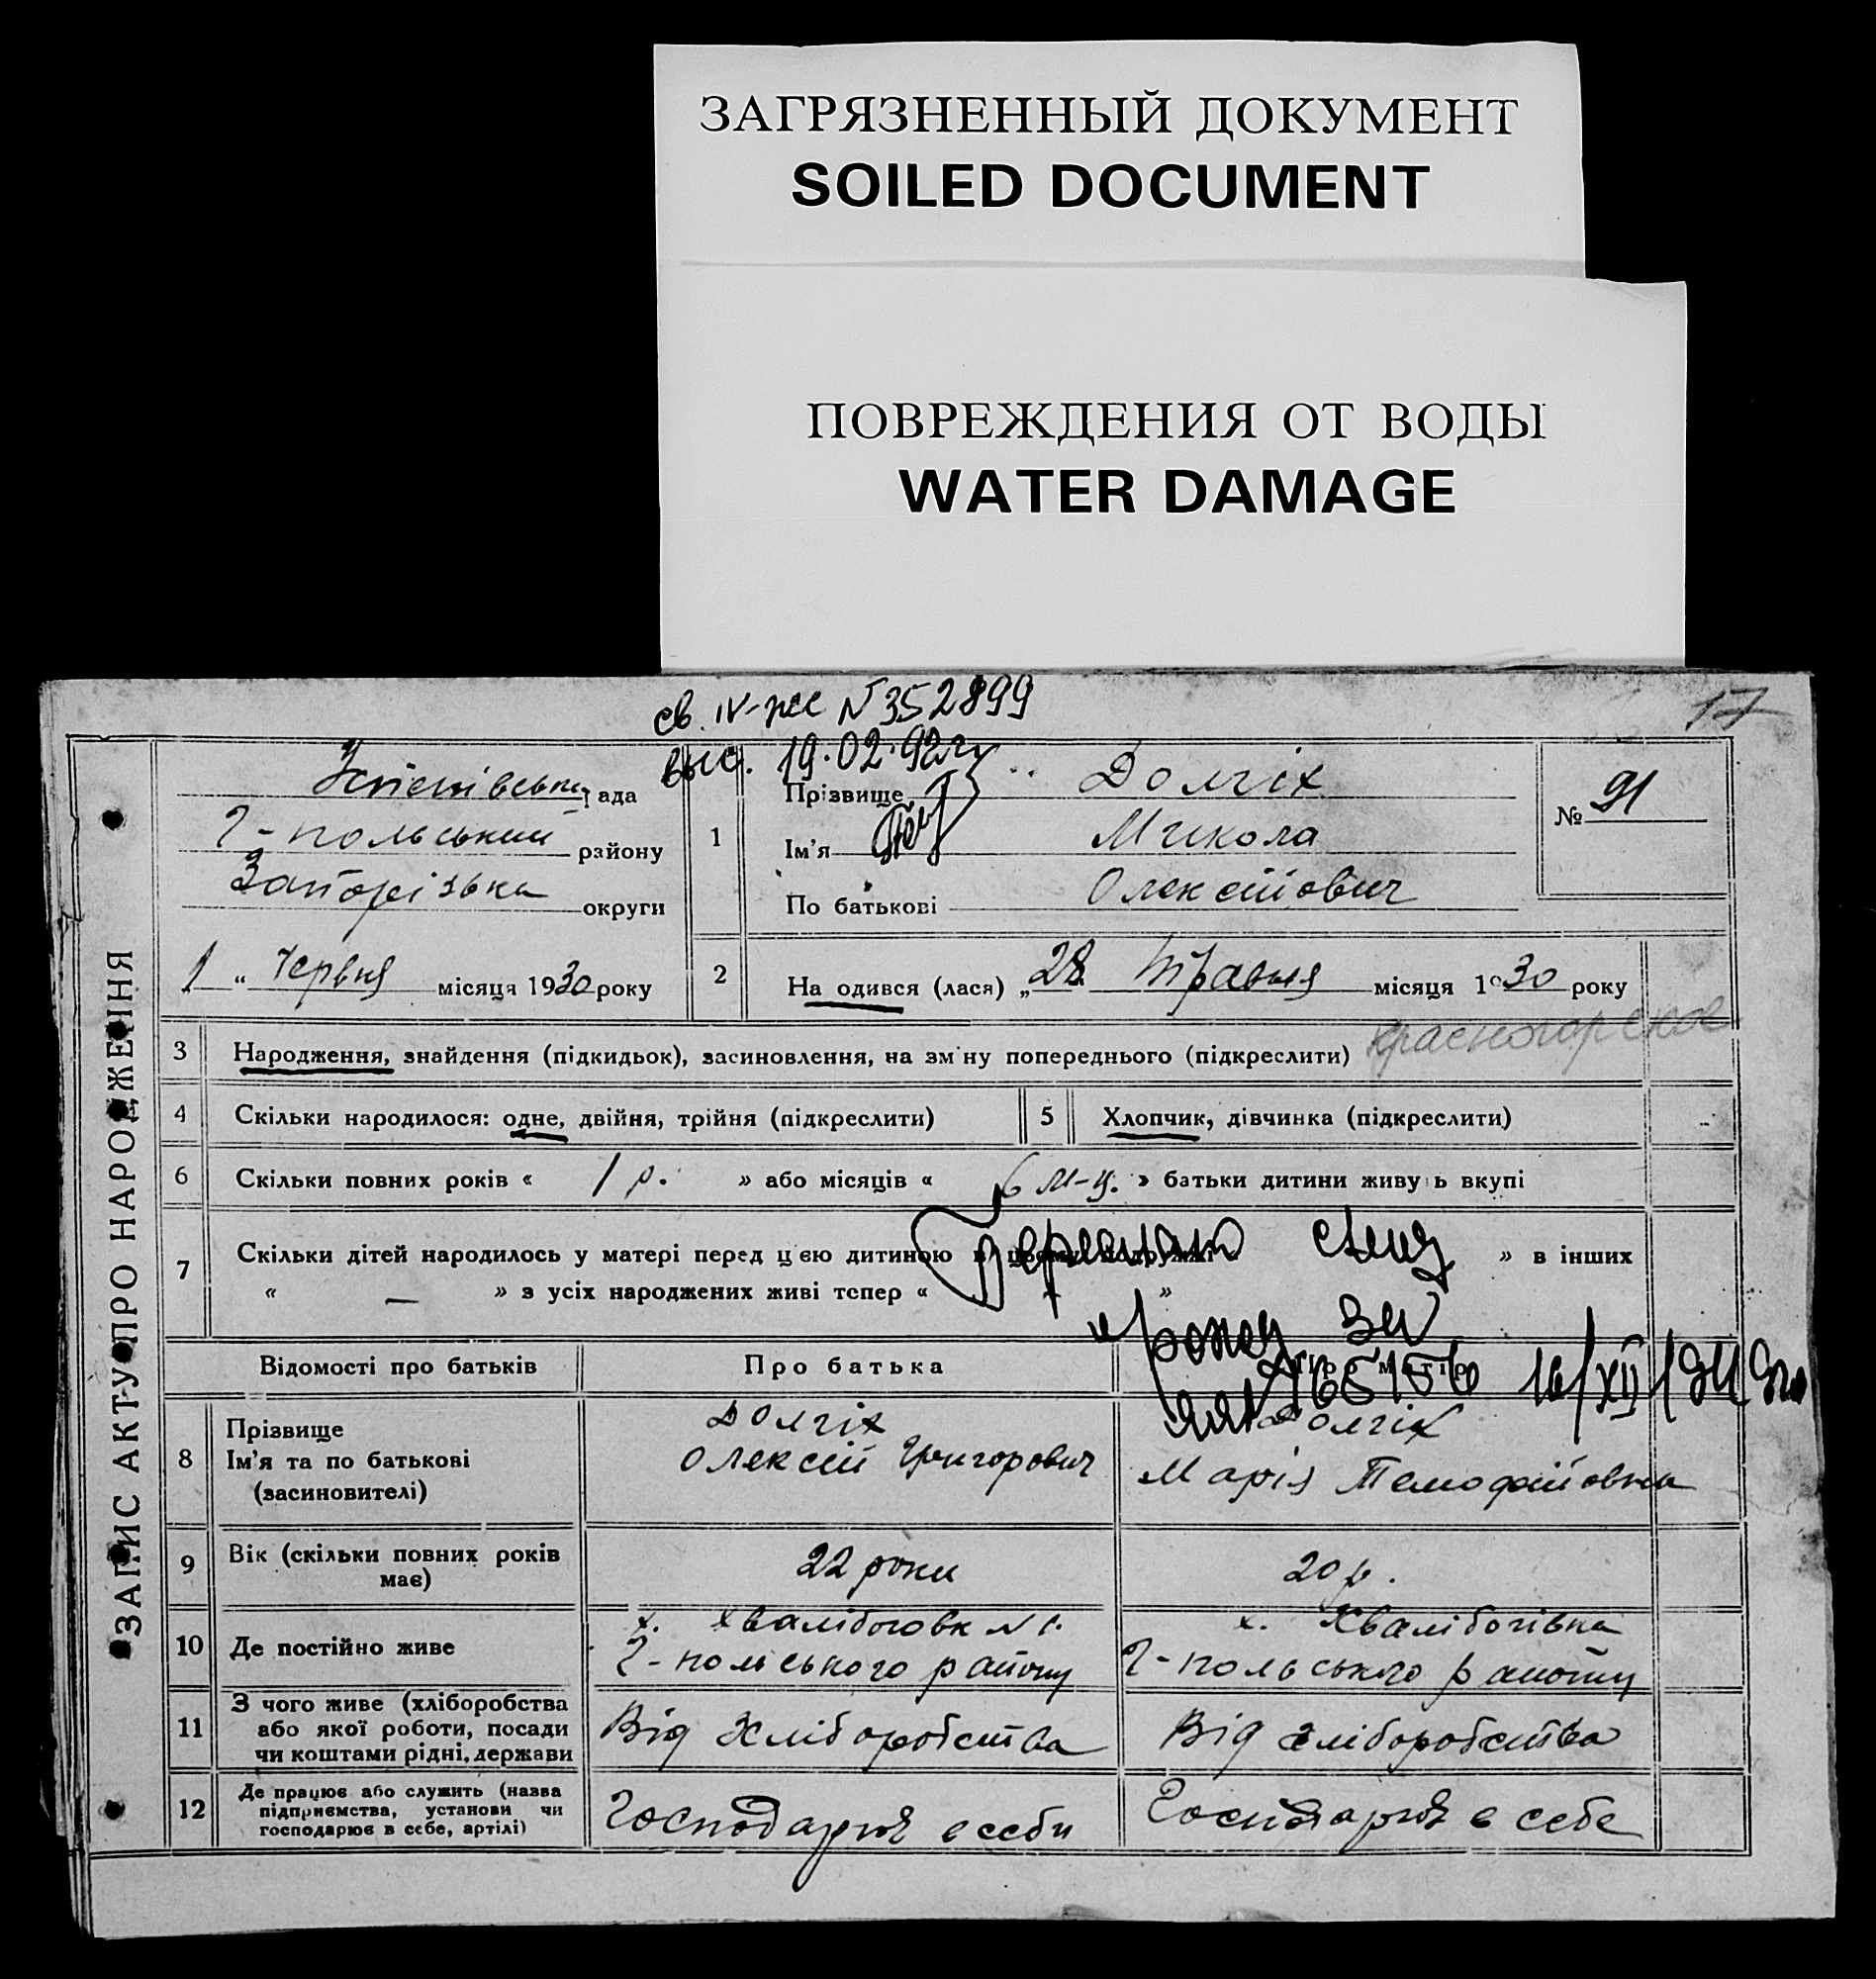 ЗАГРЯЗНЕННЫЙ ДОКУМЕНТ
SOILED DOCUMENT
ПОВРЕЖДЕНИЯ ОТ ВОДЫ
WATER DAMAGE
17
св. IV-жс N 352899
выд. 19.02.92г.
ЗАПИС АКТУ ПРО НАРОДЖЕННЯ
Успенівська рада
Г-польський району
Запорізька округи
1 Прізвище Долгіх
Ім'я Микола
По батькові Олексійович
№ 91
1 " Червня місяця 1930 року
2 На одився (лася) „28 Травня місяця 1930 року
3 Народження, знайдення (підкидьок), засиновлення, на зм ну попереднього (підкреслити) Красногорское
4 Скільки народилося: одне, двійня, трійня (підкреслити)
5 Хлопчик, дівчинка (підкреслити)
6 Скільки повних років « 1 р. » або місяців « 6 м-ц. » батьки дитини живу ь вкупі
7 Скільки дітей народилось у матері перед цією дитиною » в інших
« — » з усіх народжених живі тепер « — »
165156 16/XII
Відомості про батьків Про батька
8 Прізвище
Ім'я та по батькові
(засиновителі)
Долгіх
Олексій Григорович
Долгіх
Марія Темофійовна
9 Вік (скільки повних років має) 22 роки 20 р.
10 Де постійно живе
х. Хвалібоговк N 1.
Г-польського району
х. Хвалібогівка
Г-польського району
11 З чого живе (хліборобства
або якої роботи, посади
чи коштами рідні, держави
Від Хліборобства
Від хліборобства
12 Де працює або служить (назва
підприємства, установи чи
господарює в себе, артілі)
Господарює в себи
Господарює в себе